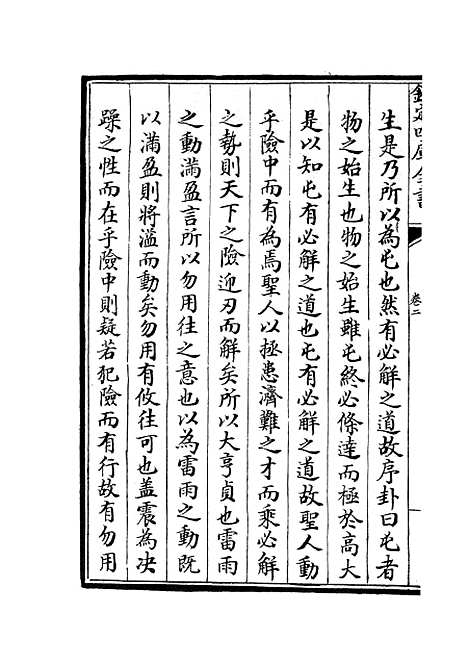 欽定四庫全書
卷二
生是乃所以為屯也然有必解之道故序卦曰屯者
物之始生也物之始生雖屯終必條達而極於高大
是以知屯有必解之道也屯有必解之道故聖人動
乎險中而有為焉聖人以極患濟難之才而乘必解
之勢則天下之險迎刃而解矣所以大亨貞也雷雨
之動滿盈言所以勿用往之意也以為雷雨之動既
以滿盈則將溢而動矣勿用有攸往可也盖震為决
躁之性而在乎險中則疑若犯險而有行故有勿用